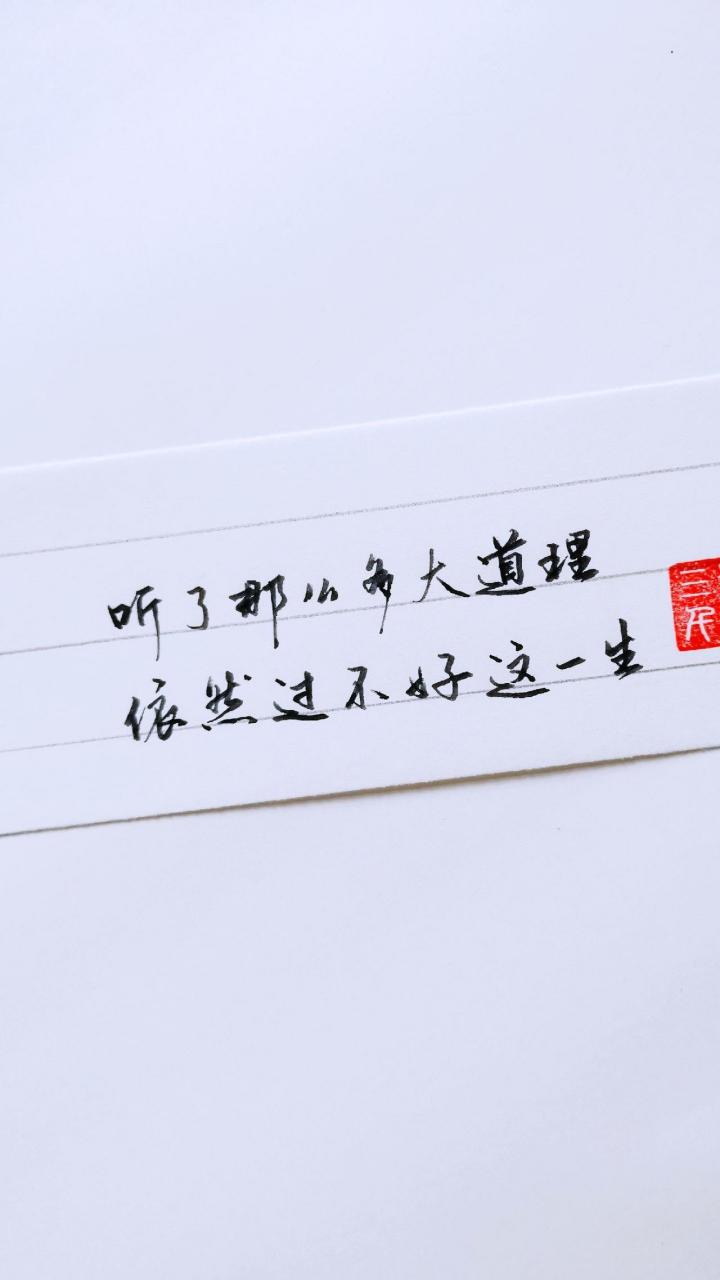 听了那么多大道理
依然过不好这一生